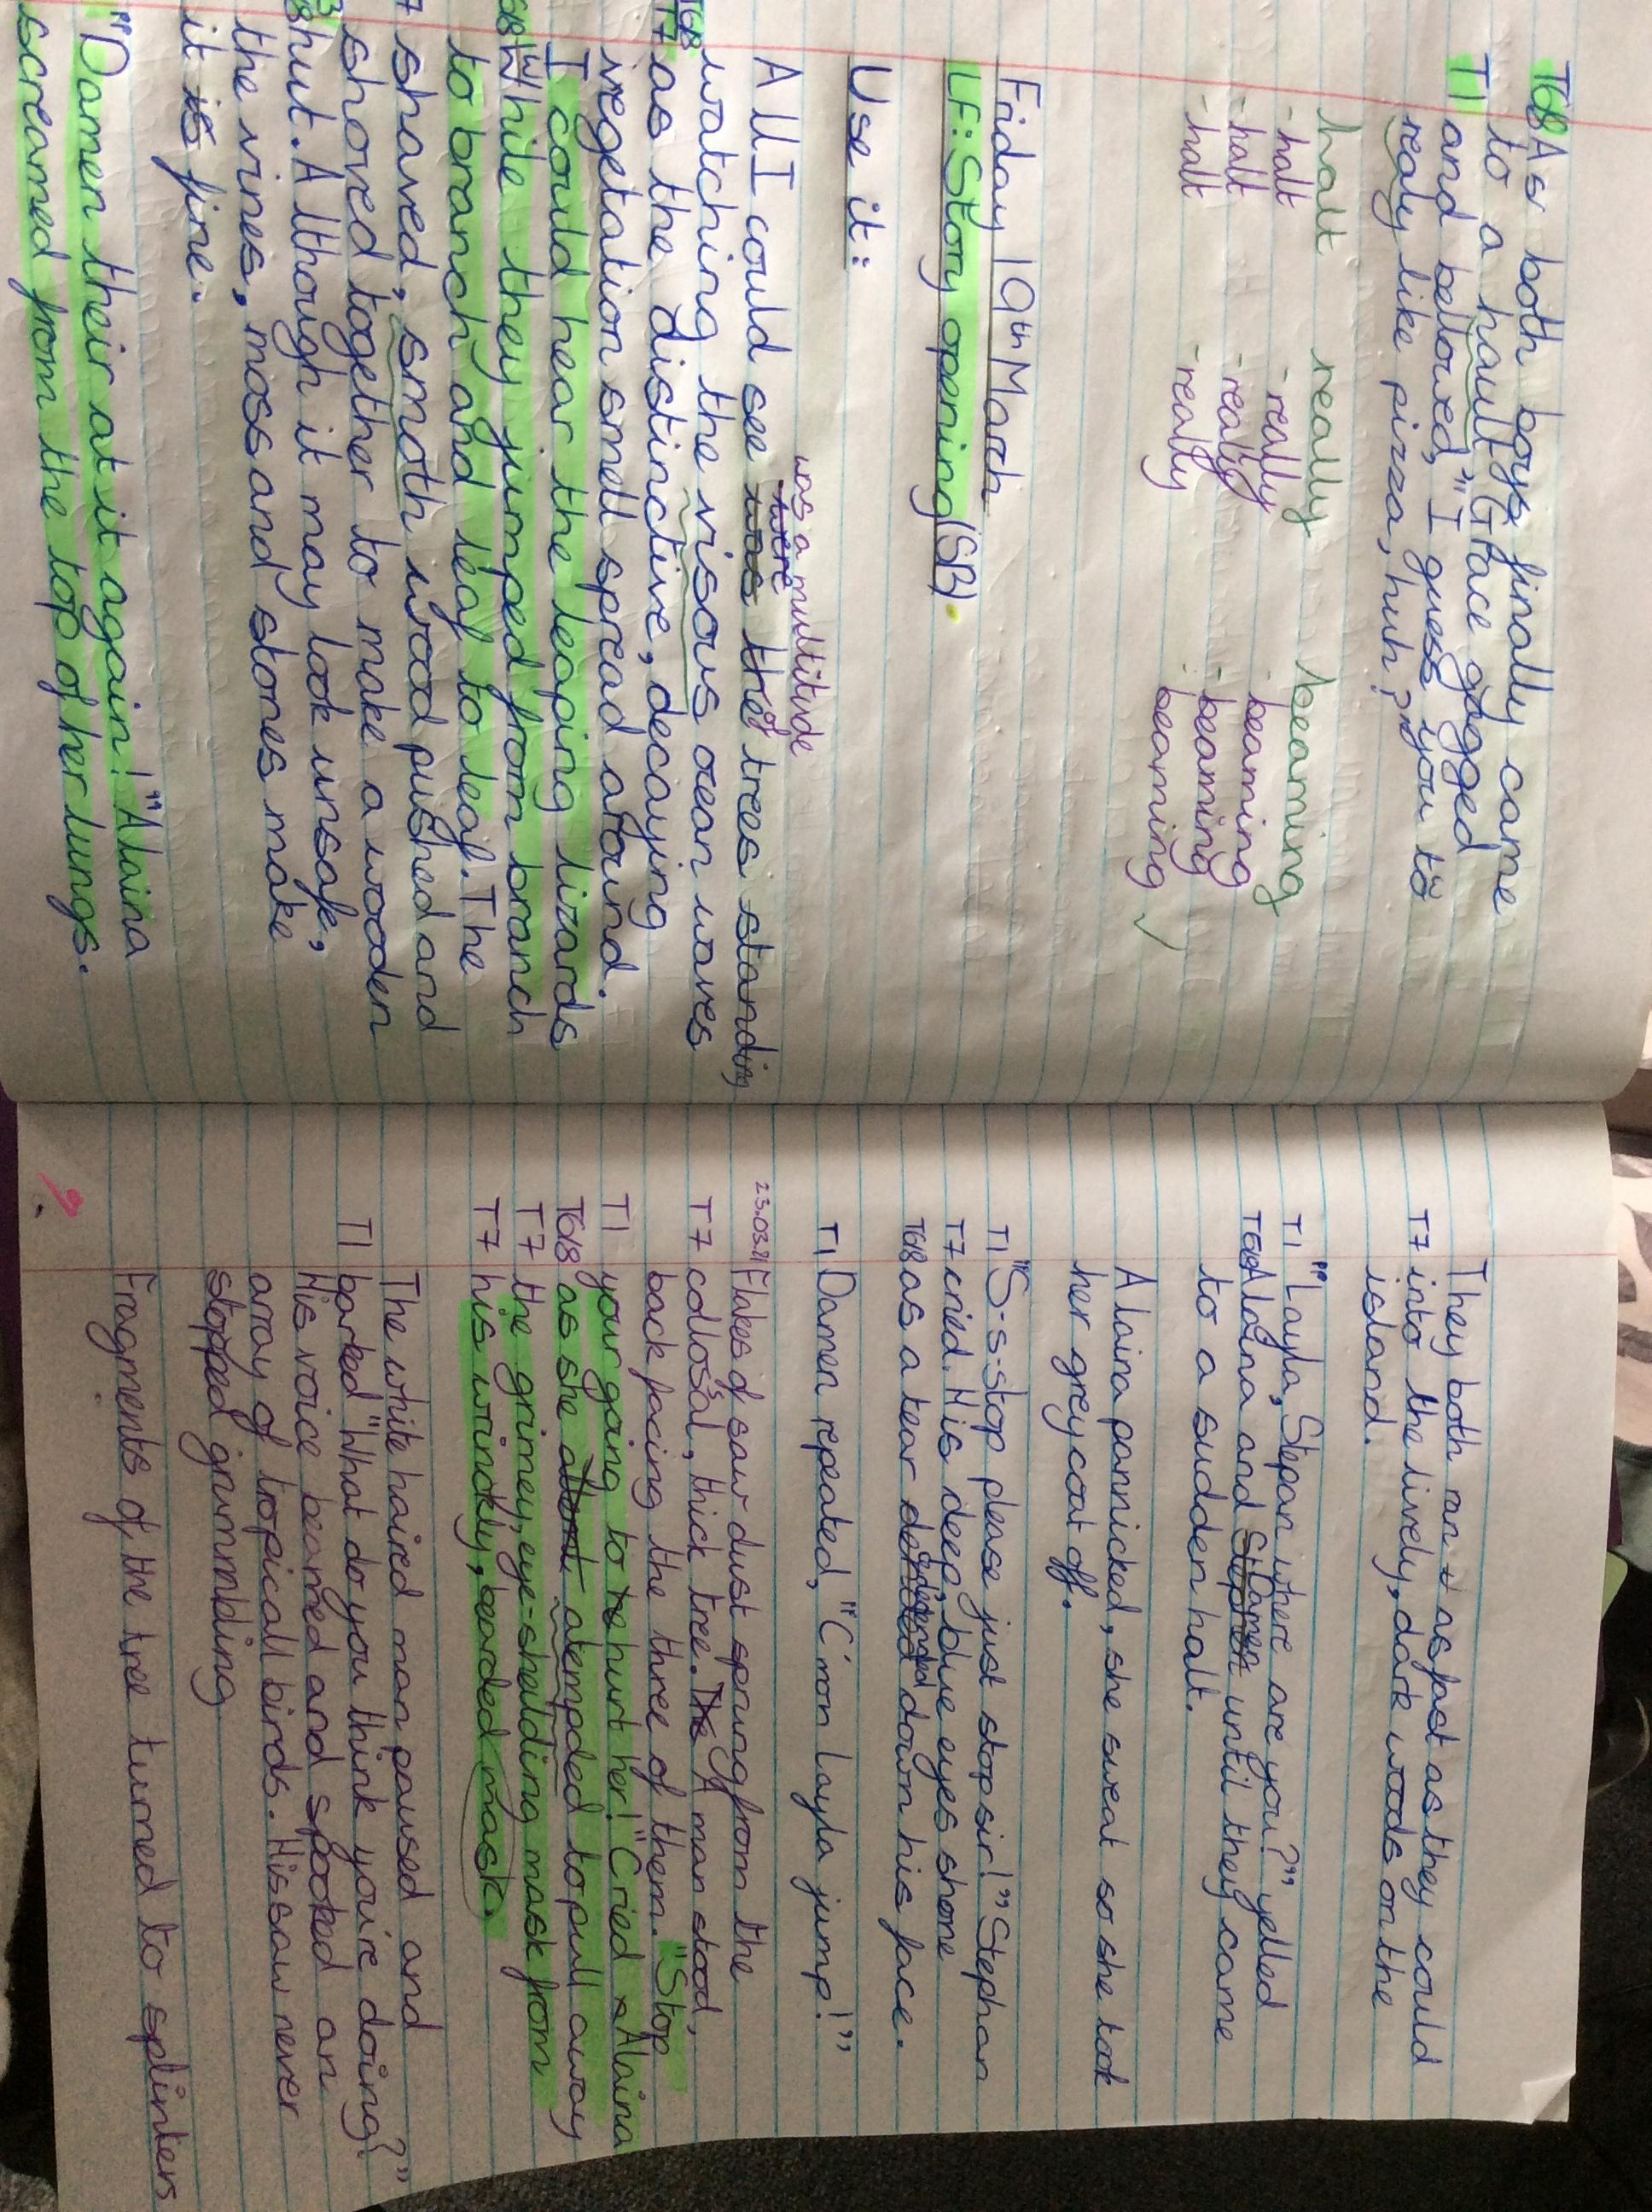 T6B As both boys finally came
to a hault, Grace gagged
T1 and bellowed, "I guess you to
realy like pizza, huh?"
halt really beaming
- halt - really - beaming
- halt - really - beaming
- halt - really - beaming ✓
Friday 19th March
LF: Story opening (SB).
Use it:
was a multitude
All I could see was were the of trees standing
T6B watching the visous ocean waves
T7 as the distinctive, decaying
vegetation smell spread around.
I could hear the leaping lizards
T6B While they jumped from branch
to branch and leaf to leaf. The
7 shaved, smoth wood pushed and
shoved together to make a wooden
hut. Although it may look unsafe,
the vines, moss and stones make
it is fine.
"Damen their at it again!" Alaina
screamed from the top of her lungs.
They both ran as fast as they could
T7 into the lively, dark woods on the
island.
T1 "Layla, Stepan where are you?" yelled
T6B Alaina and Damen until they came
to a sudden halt.
Alaina pannicked, she sweat so she took
her grey coat off.
T1 "S-s-stop please just stop sir!" Stephan
T7 cried. His deep, blue eyes shone
T6B as a tear descended down his face.
T1 Damen repeated, "C'mon Layla jump!"
23.03.21 Flakes of saw dust sprung from the
T7 collossal, thick tree. The A man stood,
back facing the three of them. "Stop
T1 your going to he hurt her!" Cried Alaina
T6B as she atemt atempded to pull away
T7 the grimey, eye-sheilding mask from
T7 his wrinckly, bearded mask.
The white haired man paused and
T1 barked "What do you think you're doing?"
His voice beamed and spooked an
array of tropicall birds. His saw never
stopped grummbling
Fragments of the tree turned to splinters